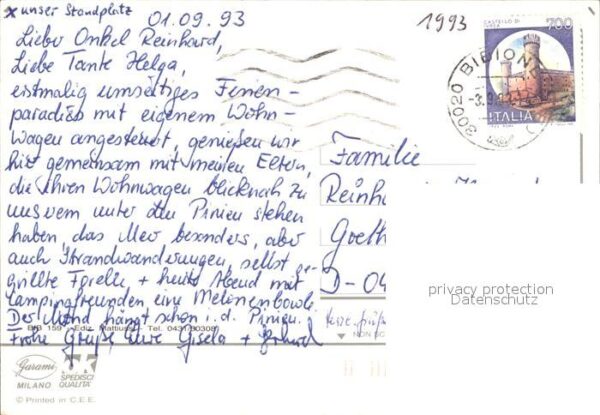 x unser Standplatz
01.09.93
1993
Lieber Onkel Reinhard,
Liebe Tante Helga,
erstmalig unser Ferien-
paradies mit eigenem Wohn-
wagen angesteuert, genießen wir
hier gemeinsam mit meinen Eltern,
die ihren Wohnwagen blicknah zu
unserem unter den Pinien stehen
haben, das Meer besonders, aber
auch Strandwanderungen, selbst ge-
grillte Forelle + heute Abend mit
Campingfreunden eine Melonenbowle
Der Mond hängt schon i. d. Pinien.
Frohe Grüße Gisela +
CASTELLO DI
IVREA
700
ITALIA
30020 BIBIONE
Familie
Reinhar
Goeth
D-04
privacy protection
Datenschutz
BIB 159 - Ediz. Mattiussi - Tel. 0431/80308
Garami
MILANO
SPEDISCI
QUALITÀ
© Printed in C.E.E.